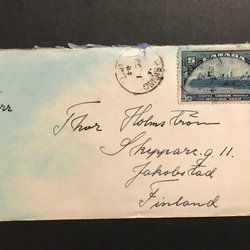 CANADA
rr
Thor Holmström
Skeppareg. 11.
Jakobstad
Finland